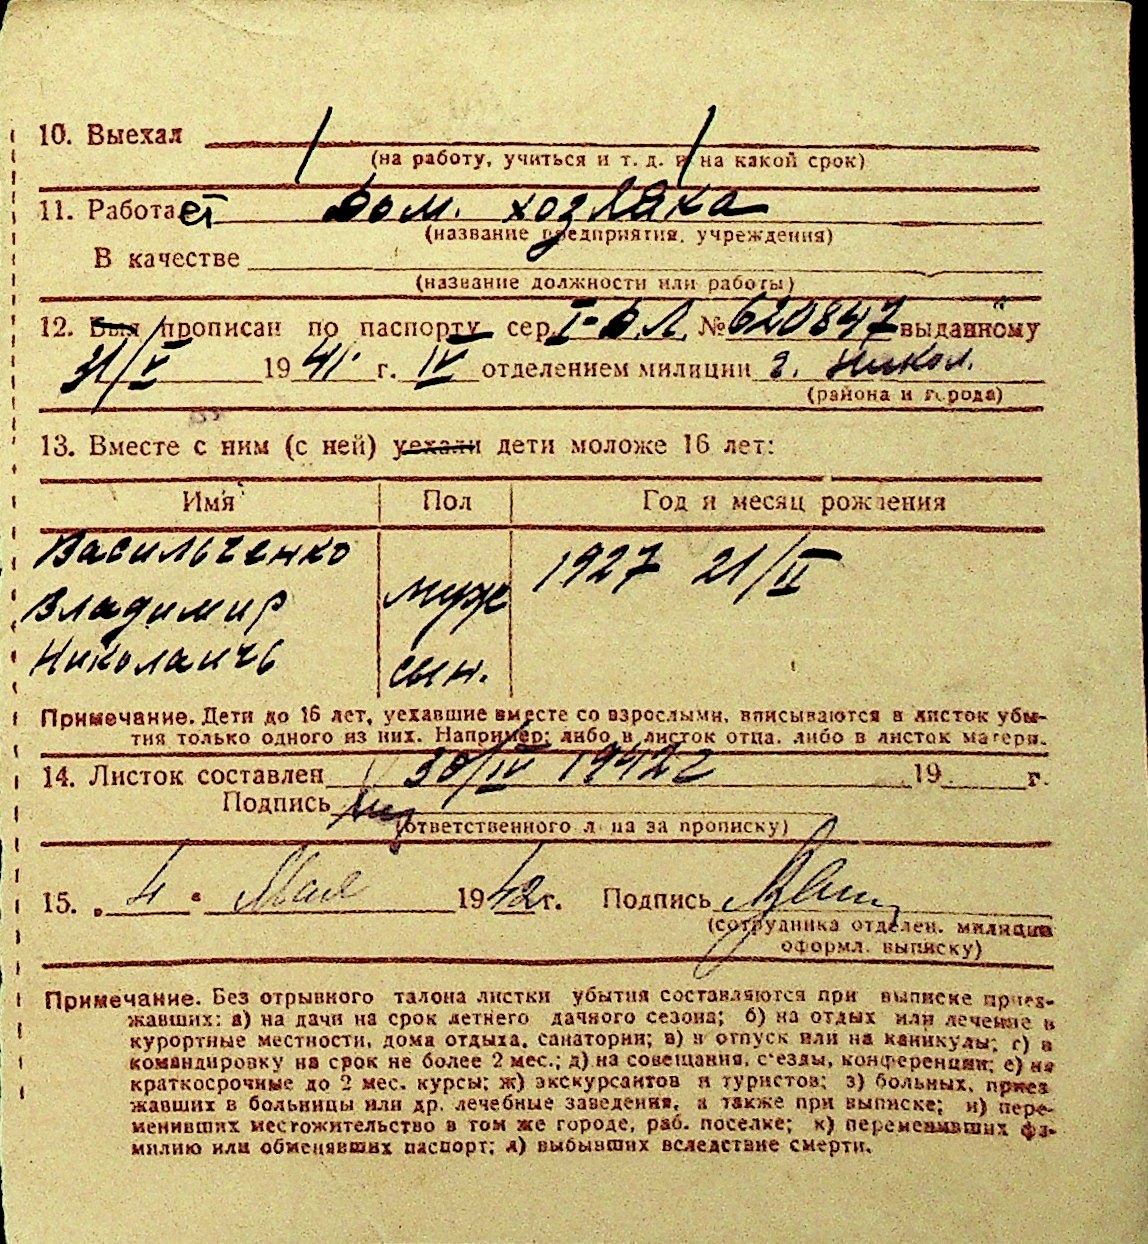 10. Выехал
(на работу, учиться и т. д. и на какой срок)
11. Работает Дом. хозяйка
(название предприятия, учреждения)
В качестве
(название должности или работы)
12. Был прописан по паспорту сер. I-БЛ № 620847 выданному
31/V 1941 г. IV отделением милиции г. Никол.
(района и города)
13. Вместе с ним (с ней) уехали дети моложе 16 лет:
Имя Пол Год и месяц рождения
Васильченко
Владимир муже 1927 21/II
Николаичь сын.
Примечание. Дети до 16 лет, уехавшие вместе со взрослыми, вписываются в листок убы-
тия только одного из них. Например: либо в листок отца, либо в листок матери.
14. Листок составлен 30/IV 1942 г 19 г.
Подпись
(ответственного лица за прописку)
15. „ 4 " Мая 1942 г. Подпись
(сотрудника отделен. милиции
оформл. выписку)
Примечание. Без отрывного талона листки убытия составляются при выписке приез-
жавших: а) на дачи на срок летнего дачного сезона; б) на отдых или лечение в
курортные местности, дома отдыха, санатории; в) в отпуск или на каникулы; г) в
командировку на срок не более 2 мес.; д) на совещания, с'езды, конференции; е) на
краткосрочные до 2 мес. курсы; ж) экскурсантов и туристов; з) больных, приез
жавших в больницы или др. лечебные заведения, а также при выписке; и) пере-
менивших местожительство в том же городе, раб. поселке; к) переменивших фа-
милию или обменявших паспорт; л) выбывших вследствие смерти.